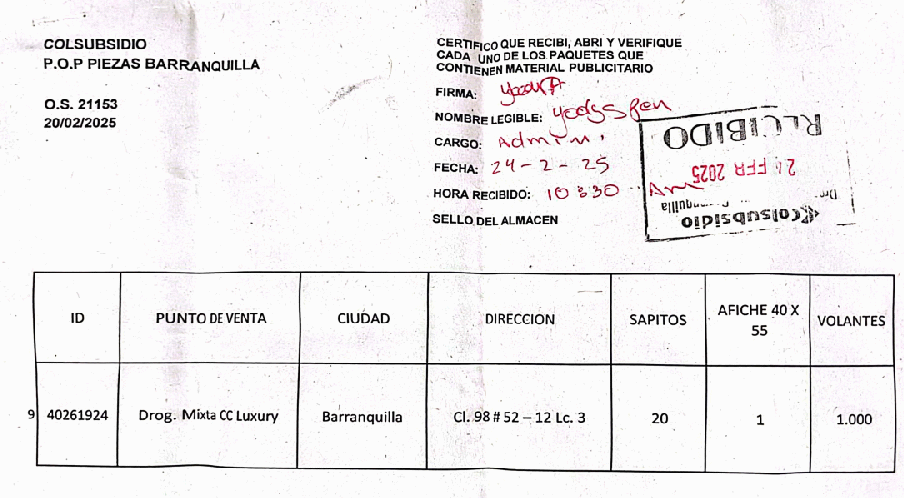 COLSUBSIDIO
P.O.P PIEZAS BARRANQUILLA
O.S. 21153
20/02/2025
CERTIFICO QUE RECIBI, ABRI Y VERIFIQUE
CADA UNO DE LOS PAQUETES QUE
CONTIENEN MATERIAL PUBLICITARIO
FIRMA:
NOMBRE LEGIBLE:
CARGO: Admin.
FECHA: 24-2-25
HORA RECIBIDO: 10:30 Am
SELLO DEL ALMACEN
Colsubsidio
24 FEB 2025
RECIBIDO
ID PUNTO DE VENTA CIUDAD DIRECCION SAPITOS AFICHE 40 X 55 VOLANTES
9 40261924 Drog. Mixta CC Luxury Barranquilla Cl. 98 # 52 – 12 Lc. 3 20 1 1.000